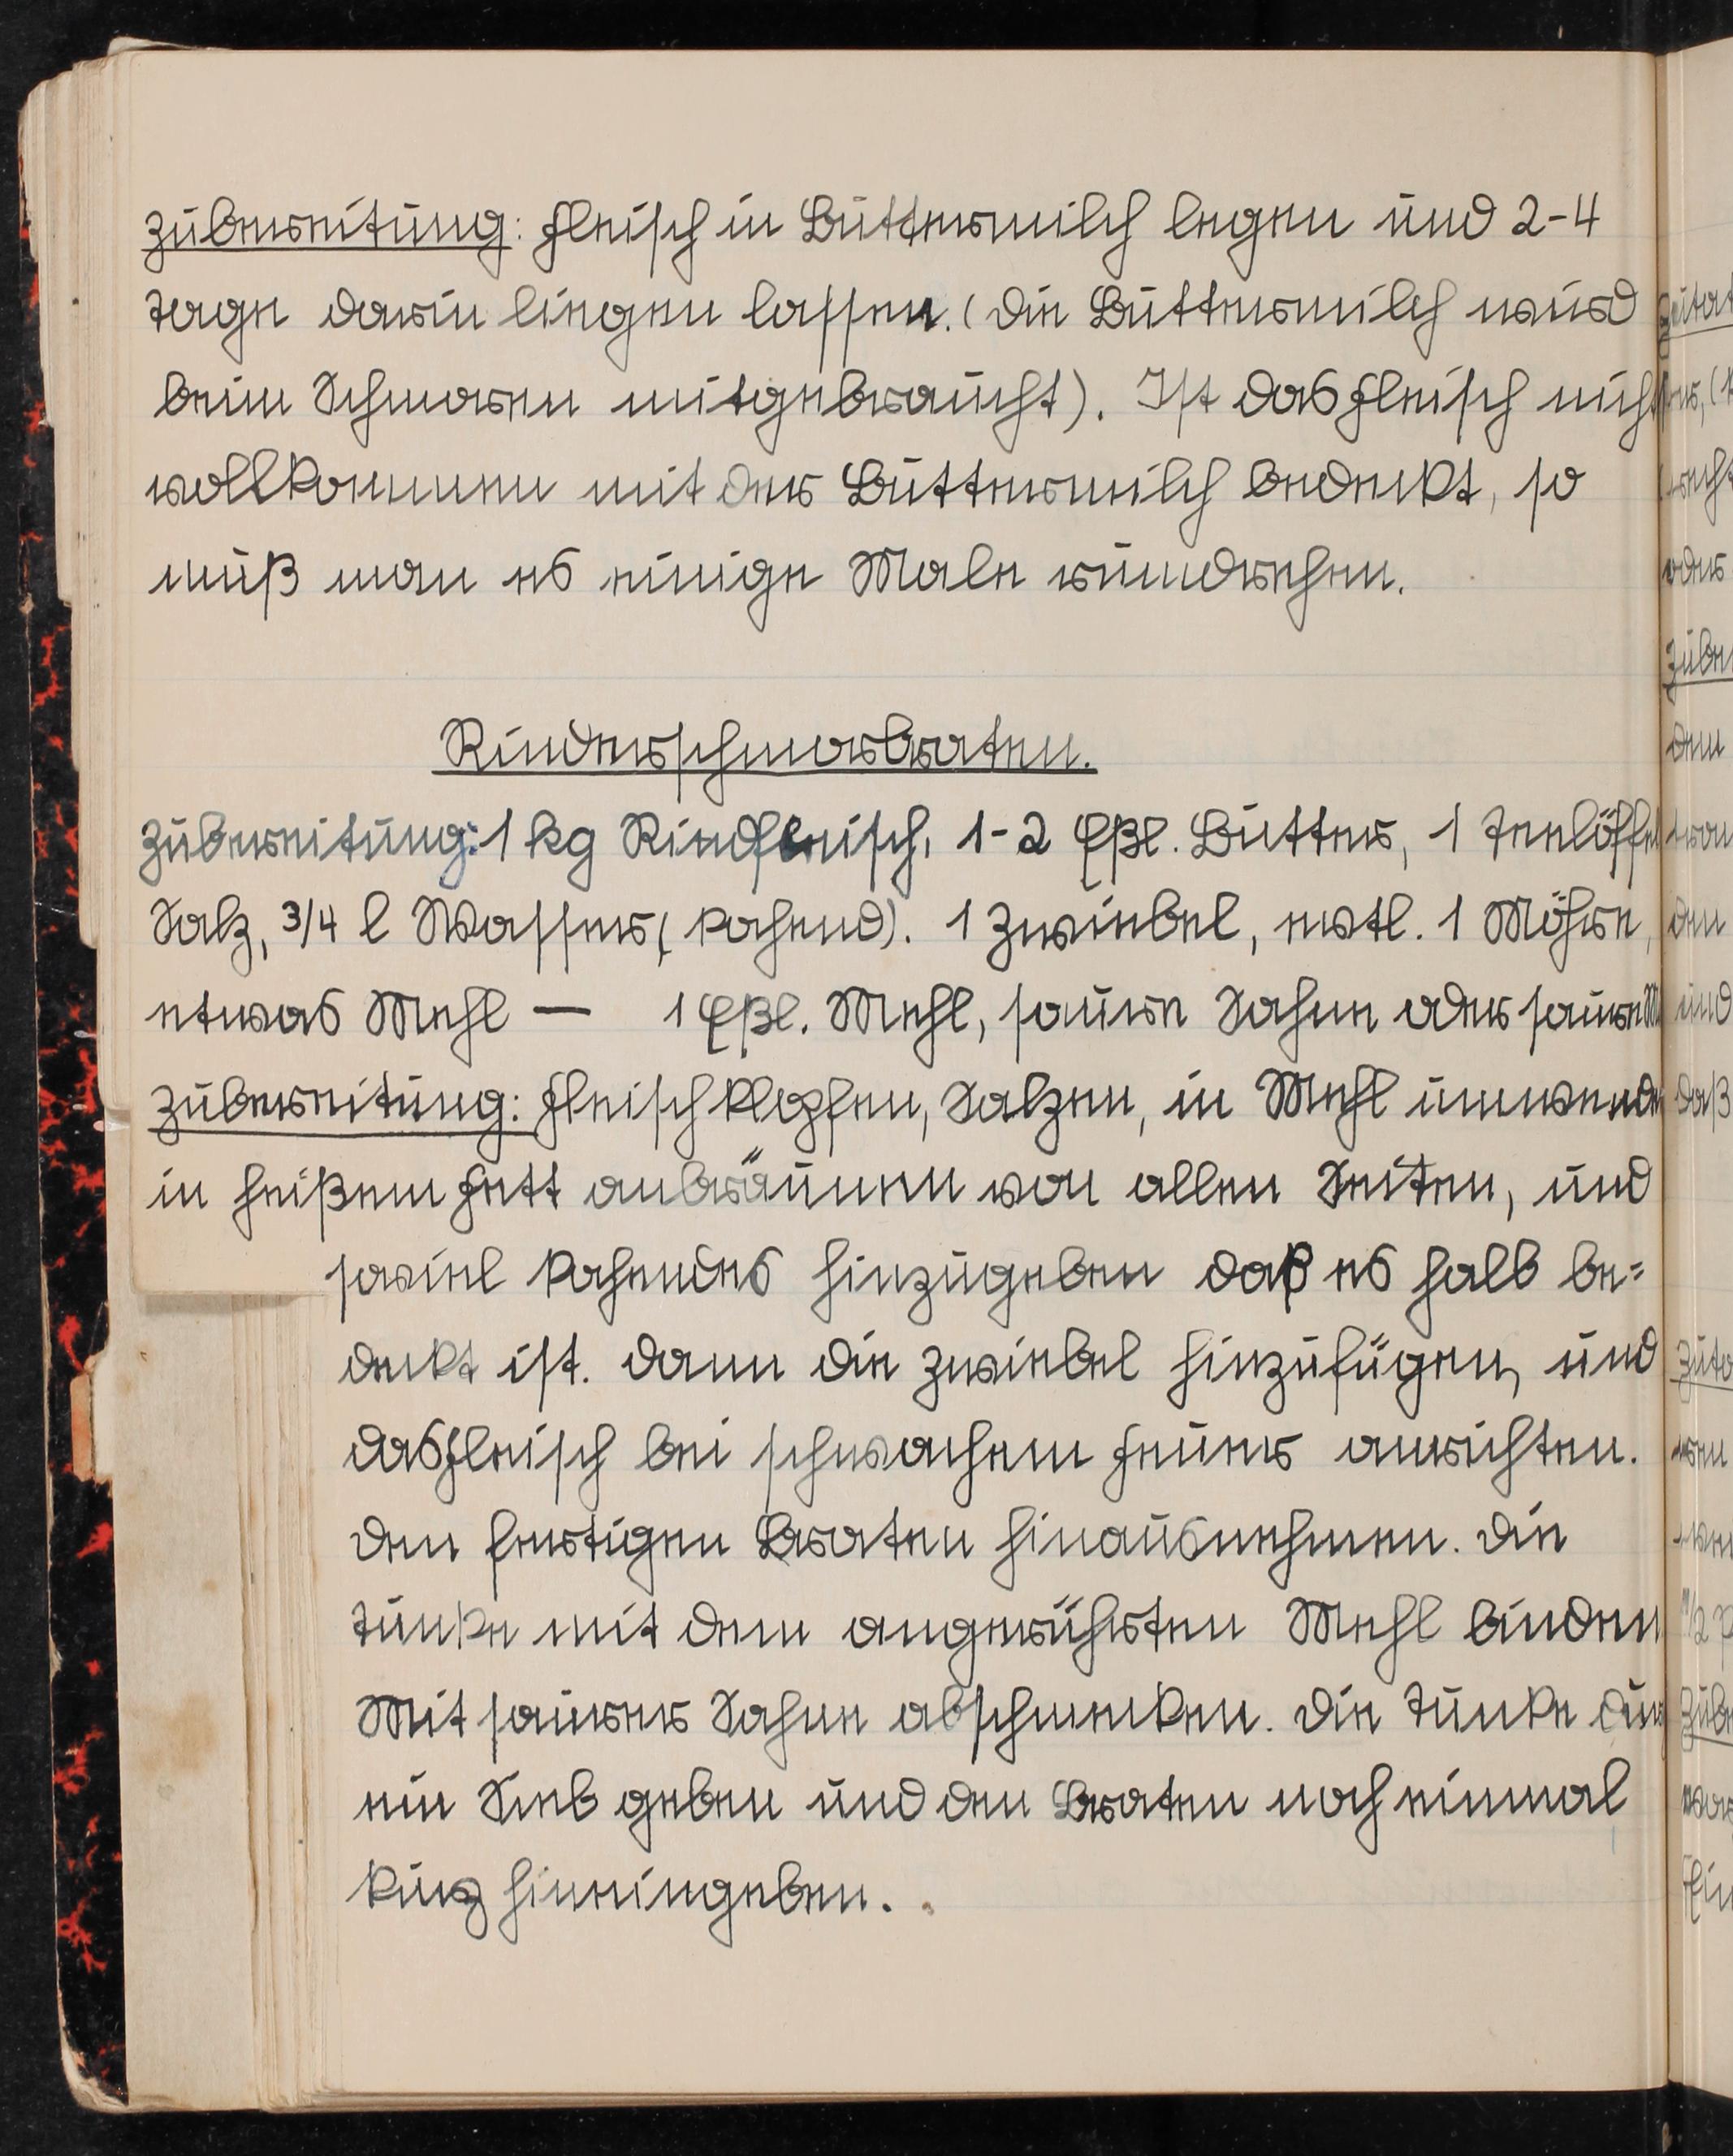 Zubereitung: Fleisch in Buttermilch legen und 2-4
Tage darin liegen lassen. (Die Buttermilch wird
beim Schmoren mitgebraucht). Ist das Fleisch nicht
vollkommen mit der Buttermilch bedeckt, so
muß man es einige Male rumdrehen.
Rinderschmorbraten.
Zubereitung: 1 kg Rindfleisch, 1-2 Eßl. Butter, 1 Teelöffel
Salz, 3/4 l Wasser (kochend). 1 Zwiebel, evtl. 1 Möhre,
etwas Mehl — 1 Eßl. Mehl, saure Sahne oder saure M
Zubereitung: Fleisch klopfen, Salzen, in Mehl umwenden
in heißem Fett anbräunen von allen Seiten, und
soviel kochendes hinzugeben daß es halb be=
deckt ist. Dann die Zwiebel hinzufügen, und
das Fleisch bei schwachem Feuer anrichten.
Den fertigen Braten hinausnehmen. Die
Tunke mit dem angerührten Mehl binden
Mit saurer Sahne abschmecken. Die Tunke dur
ein Sieb geben und den Braten noch einmal
kurz hineingeben.